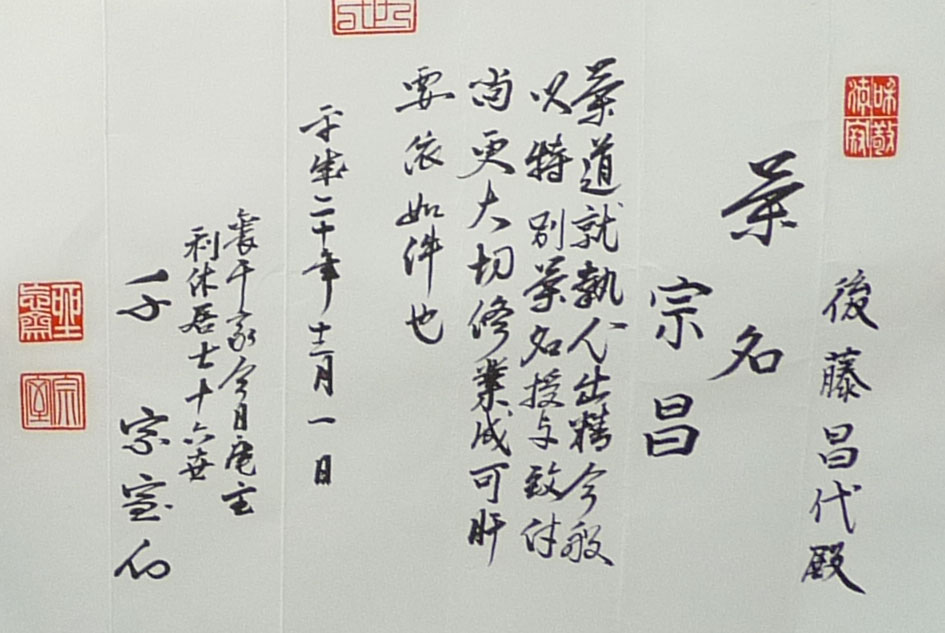 和敬
清寂
後藤昌代殿
茶名
宗昌
茶道就執心出精今般
以特別茶名授与致候
尚更大切修業成可肝
要依如件也
平成二十年十二月一日
裏千家今日庵主
利休居士十六世
千宗室